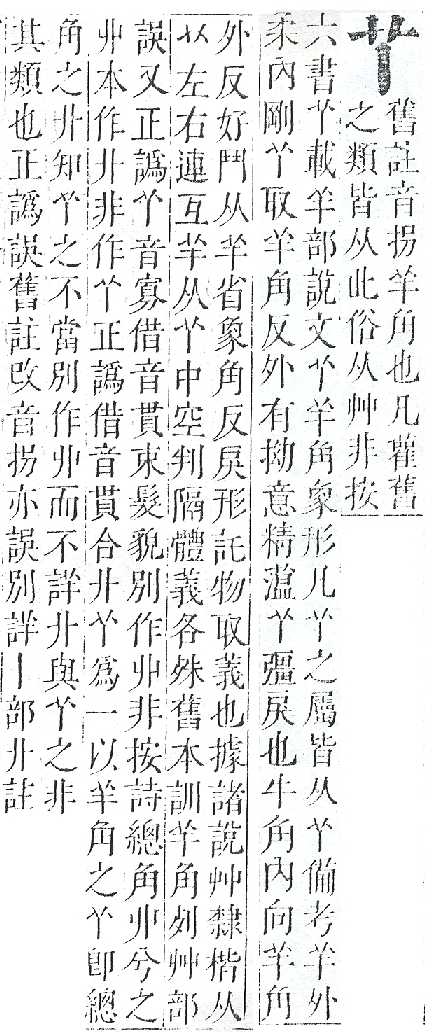 𦫳
舊註音拐羊角也凡雚舊
之類皆从此俗从艸非按
六書𦫳載羊部說文𦫳羊角象形凡𦫳之屬皆从𦫳僃考羊外
柔內剛𦫳取羊角反外有拗意精薀𦫳彊戾也牛角內向羊角
外反好鬥从羊省象角反戾形託物取義也據諸說艸隸楷从
左右連互羊从𦫳中空判隔體義各殊舊本訓羊角列艸部
誤又正譌𦫳音寡借音貫束髮貌別作丱非按詩總角丱兮之
丱本作卝非作𦫳正譌借音貫合卝𦫳爲一以羊角之𦫳卽總
角之卝知𦫳之不當別作丱而不詳卝與𦫳之非
其類也正譌誤舊註改音拐亦誤別詳丨部卝註